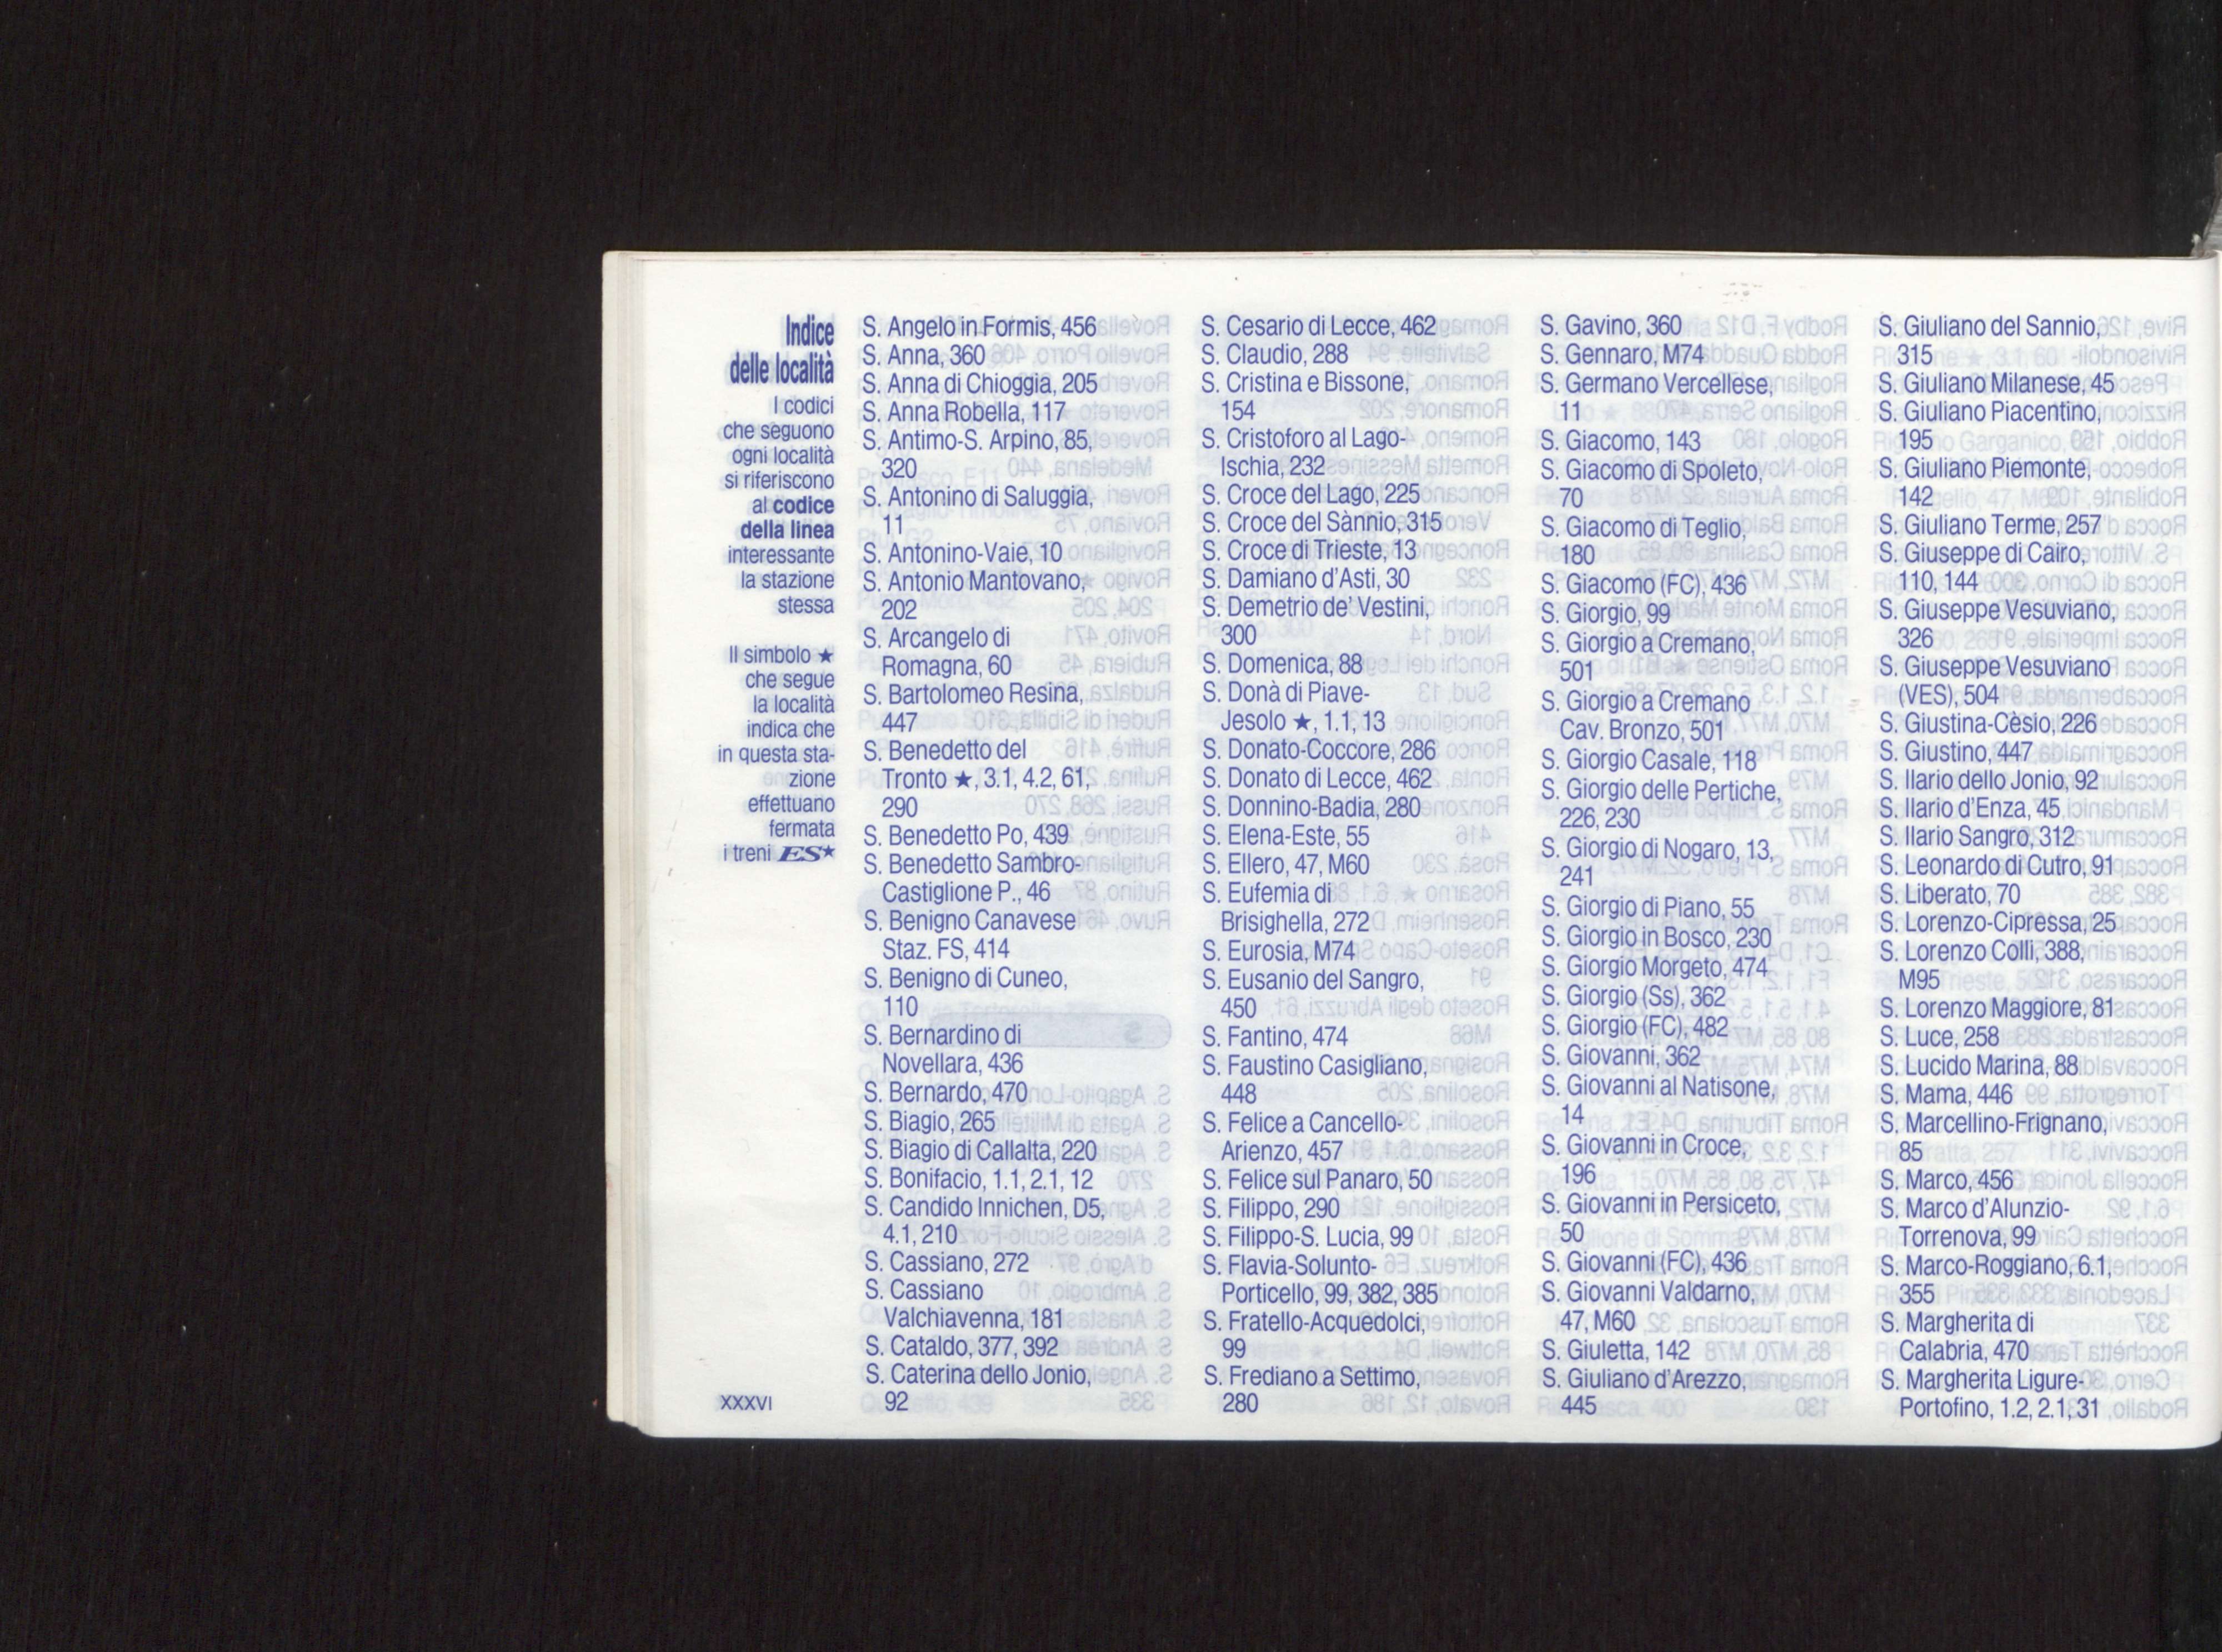 Indice
delle località
I codici
che seguono
ogni località
si riferiscono
al codice
della linea
interessante
la stazione
stessa
Il simbolo ★
che segue
la località
indica che
in questa sta-
zione
effettuano
fermata
i treni ES★
XXXVI
S. Angelo in Formis, 456
S. Anna, 360
S. Anna di Chioggia, 205
S. Anna Robella, 117
S. Antimo-S. Arpino, 85,
320
S. Antonino di Saluggia,
11
S. Antonino-Vaie, 10
S. Antonio Mantovano,
202
S. Arcangelo di
Romagna, 60
S. Bartolomeo Resina,
447
S. Benedetto del
Tronto ★, 3.1, 4.2, 61,
290
S. Benedetto Po, 439
S. Benedetto Sambro-
Castiglione P., 46
S. Benigno Canavese
Staz. FS, 414
S. Benigno di Cuneo,
110
S. Bernardino di
Novellara, 436
S. Bernardo, 470
S. Biagio, 265
S. Biagio di Callalta, 220
S. Bonifacio, 1.1, 2.1, 12
S. Candido Innichen, D5,
4.1, 210
S. Cassiano, 272
S. Cassiano
Valchiavenna, 181
S. Cataldo, 377, 392
S. Caterina dello Jonio,
92
S. Cesario di Lecce, 462
S. Claudio, 288
S. Cristina e Bissone,
154
S. Cristoforo al Lago-
Ischia, 232
S. Croce del Lago, 225
S. Croce del Sànnio, 315
S. Croce di Trieste, 13
S. Damiano d'Asti, 30
S. Demetrio de' Vestini,
300
S. Domenica, 88
S. Donà di Piave-
Jesolo ★, 1.1, 13
S. Donato-Coccore, 286
S. Donato di Lecce, 462
S. Donnino-Badia, 280
S. Elena-Este, 55
S. Ellero, 47, M60
S. Eufemia di
Brisighella, 272
S. Eurosia, M74
S. Eusanio del Sangro,
450
S. Fantino, 474
S. Faustino Casigliano,
448
S. Felice a Cancello-
Arienzo, 457
S. Felice sul Panaro, 50
S. Filippo, 290
S. Filippo-S. Lucia, 99
S. Flavia-Solunto-
Porticello, 99, 382, 385
S. Fratello-Acquedolci,
99
S. Frediano a Settimo,
280
S. Gavino, 360
S. Gennaro, M74
S. Germano Vercellese,
11
S. Giacomo, 143
S. Giacomo di Spoleto,
70
S. Giacomo di Teglio,
180
S. Giacomo (FC), 436
S. Giorgio, 99
S. Giorgio a Cremano,
501
S. Giorgio a Cremano
Cav. Bronzo, 501
S. Giorgio Casale, 118
S. Giorgio delle Pertiche,
226, 230
S. Giorgio di Nogaro, 13,
241
S. Giorgio di Piano, 55
S. Giorgio in Bosco, 230
S. Giorgio Morgeto, 474
S. Giorgio (Ss), 362
S. Giorgio (FC), 482
S. Giovanni, 362
S. Giovanni al Natisone,
14
S. Giovanni in Croce,
196
S. Giovanni in Persiceto,
50
S. Giovanni (FC), 436
S. Giovanni Valdarno,
47, M60
S. Giuletta, 142
S. Giuliano d'Arezzo,
445
S. Giuliano del Sannio,
315
S. Giuliano Milanese, 45
S. Giuliano Piacentino,
195
S. Giuliano Piemonte,
142
S. Giuliano Terme, 257
S. Giuseppe di Cairo,
110, 144
S. Giuseppe Vesuviano,
326
S. Giuseppe Vesuviano
(VES), 504
S. Giustina-Cèsio, 226
S. Giustino, 447
S. Ilario dello Jonio, 92
S. Ilario d'Enza, 45
S. Ilario Sangro, 312
S. Leonardo di Cutro, 91
S. Liberato, 70
S. Lorenzo-Cipressa, 25
S. Lorenzo Colli, 388,
M95
S. Lorenzo Maggiore, 81
S. Luce, 258
S. Lucido Marina, 88
S. Mama, 446
S, Marcellino-Frignano,
85
S. Marco, 456
S. Marco d'Alunzio-
Torrenova, 99
S. Marco-Roggiano, 6.1,
355
S. Margherita di
Calabria, 470
S. Margherita Ligure-
Portofino, 1.2, 2.1, 31